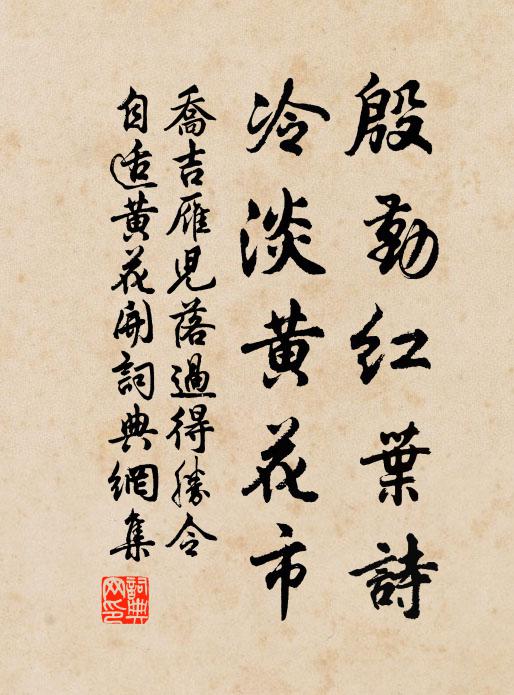 殷勤红葉詩
冷淡黄花市
喬吉雁兒落過得勝令
自适黄花開詞典網集
詞典網印